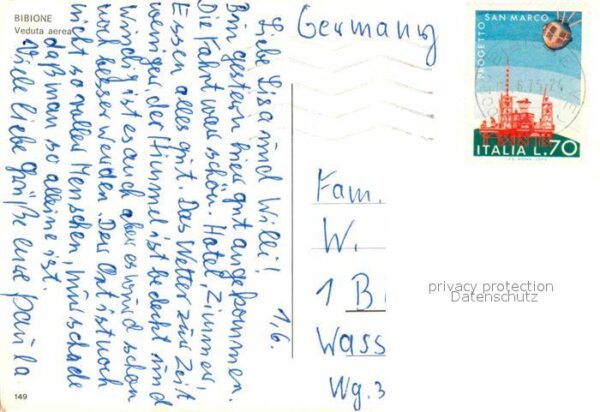 BIBIONE
Veduta aerea
1,6.
Liebe Lisa und Willi!
Bin gestern hier gut angekommen.
Die Fahrt war schön. Hotel, Zimmer,
Essen alles gut. Das Wetter zur Zeit
weniger, der Himmel ist bedeckt und
windig ist es auch aber es wird schon
noch besser werden. Der Ort ist noch
nicht so voller Menschen, nur schade
daß man so alleine ist.
Viele liebe Grüße eure Paula
149
Germany
PROGETTO SAN MARCO
ITALIA L.70
Fam.
W.
1 B
Wass
Wg. 3
privacy protection
Datenschutz